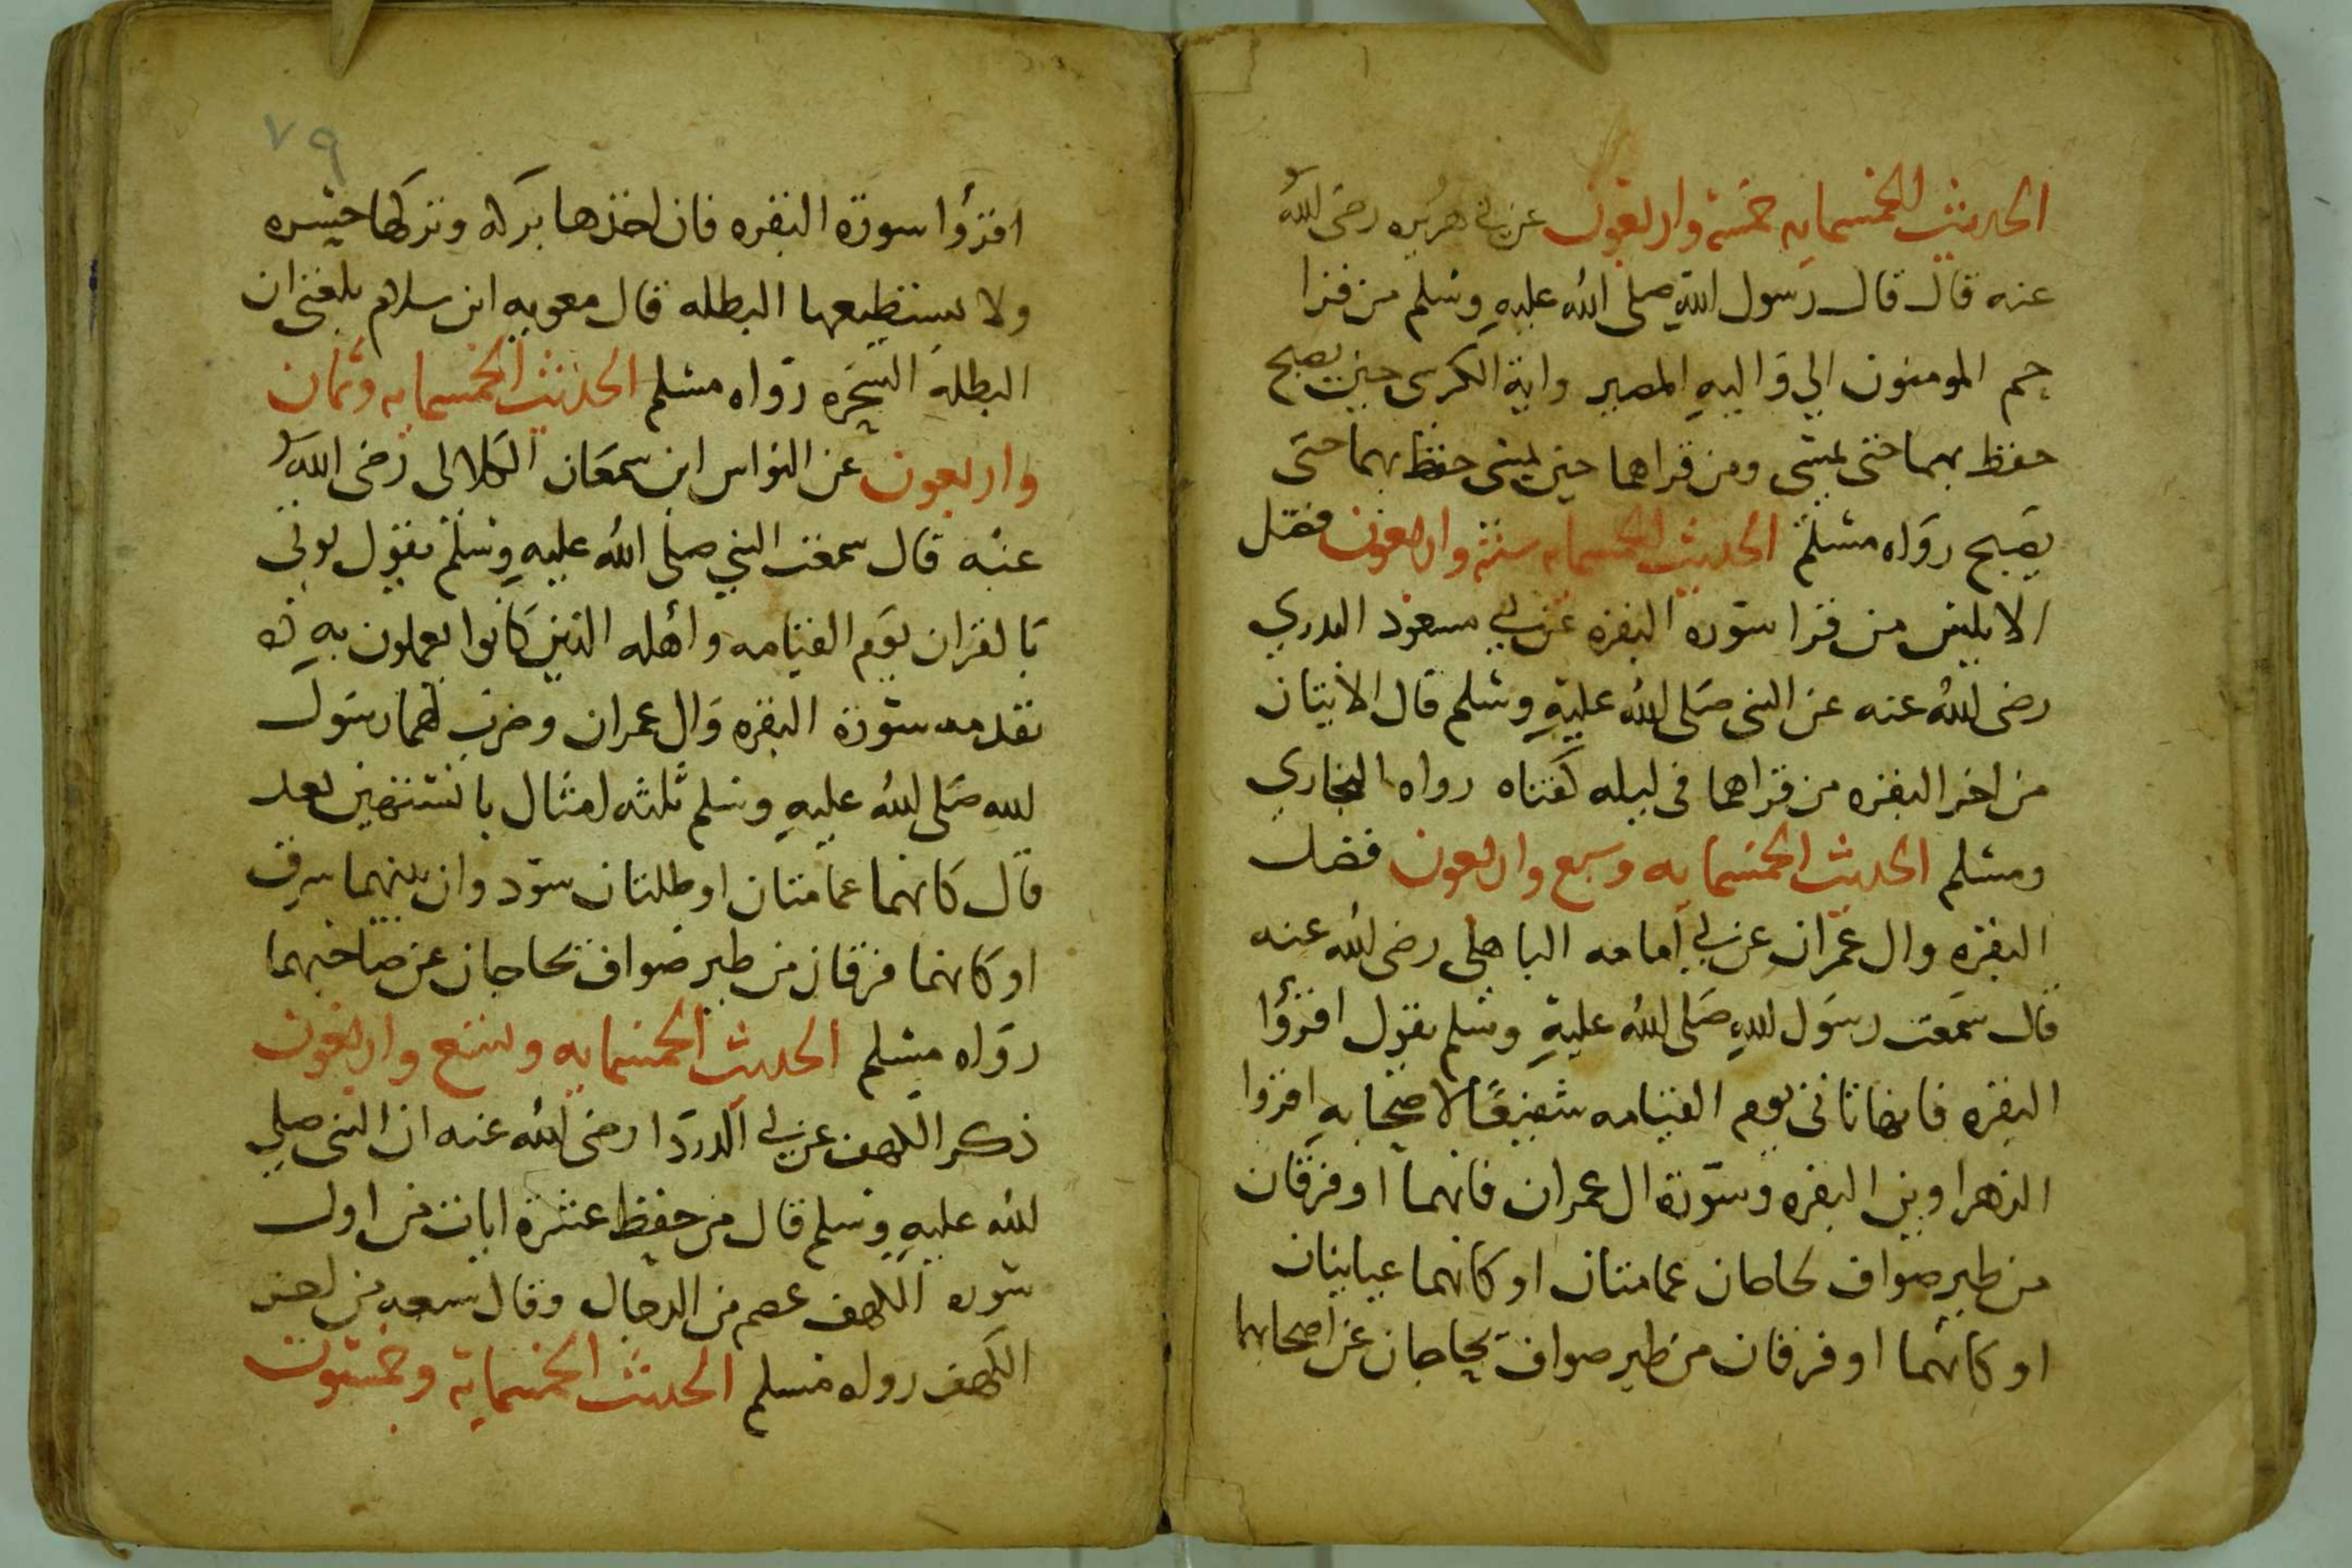 الحديث الخمسمايه خمسة واربعون عن ابي هريره رضى الله
عنه قال قال رسول الله صلى الله عليه وسلم من قرا
حم المومنون الي واليه المصير واية الكرسى حين يصبح
حفظ بهما حتى يمسى ومن قراهما حين يمسى حفظ بهما حتى
يصبح رواه مسلم الحديث الخمسمايه ستة واربعون فضل
الايتين من قرا سورة البقره عن ابي مسعود البدري
رضى الله عنه عن النبى صلى الله عليه وسلم قال الايتان
من اخر البقره من قراهما فى ليله كفتاه رواه البخاري
ومسلم الحديث الخمسمايه وسبع واربعون فضل
البقره وال عمران عن ابي أمامه الباهلى رضى الله عنه
قال سمعت رسول الله صلى الله عليه وسلم يقول اقرؤا
البقره فانها تاتى يوم القيامه شفيعًا لاصحابه اقروا
الزهراوين البقره وسورة ال عمران فانهما او فرقان
من طير صواف تحاجان غمامتان او كانهما غيايتان
او كانهما او فرقان من طير صواف يحاجان عن اصحابهما
٧٩
اقرؤا سورة البقره فان اخذها بركه وتركها حسره
ولا يستطيعها البطله قال معويه ابن سلام بلغنى ان
البطله السحره رواه مسلم الحديث الخمسمايه وثمان
واربعون عن النواس ابن سمعان الكلابى رضى الله
عنه قال سمعت النبي صلى الله عليه وسلم يقول يوتى
بالقران يوم القيامه وأهله الذين كانوا يعملون به
تقدمه سورة البقره وال عمران وضرب لهما رسول
الله صلى الله عليه وسلم ثلثه امثال ما نسيتهن بعد
قال كانهما غمامتان او ظلتان سود وان بينهما شرق
او كانهما فرقان من طير صواف تحاجان عن صاحبهما
رواه مسلم الحديث الخمسمايه وتسع واربعون
ذكر الكهف عن ابي الدردا رضى الله عنه ان النبى صلي
الله عليه وسلم قال من حفظ عشرة ايات من اول
سورة الكهف عصم من الدجال وقال شعبه من اخر
الكهف رواه مسلم الحديث الخمسماية وخمسون